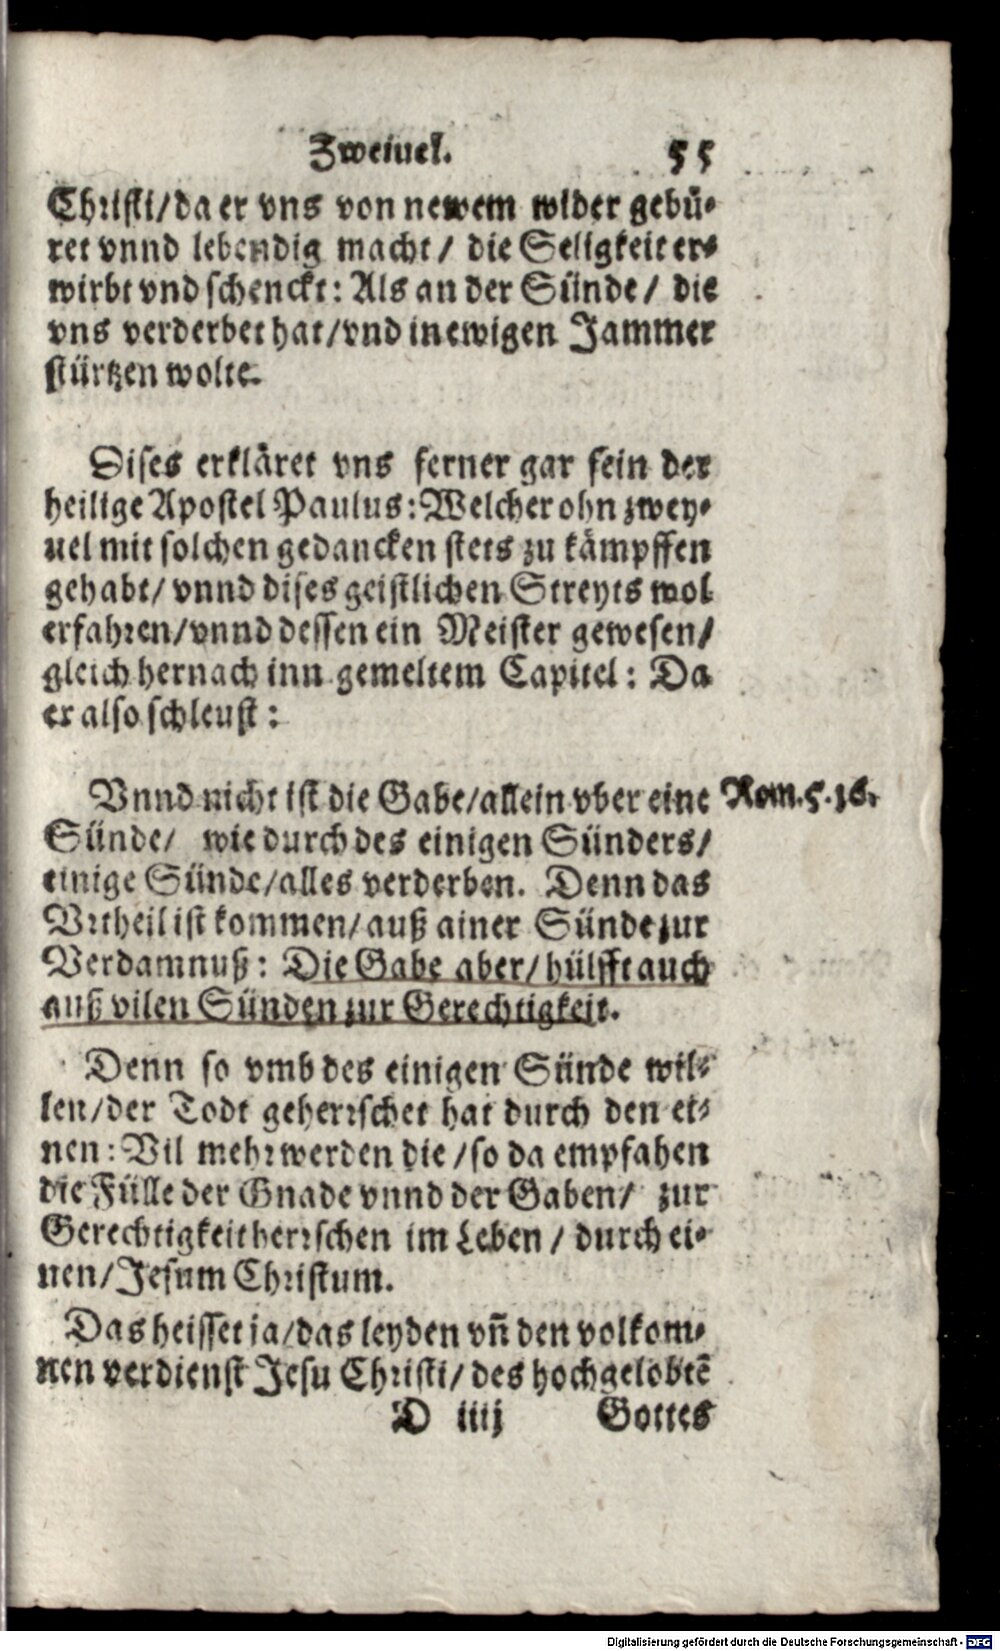 Zweiuel. 55
Christi/da er vns von newem wider gebü-
ret vnnd lebendig macht/ die Seligkeit er-
wirbt vnd schenckt: Als an der Sünde/ die
vns verderbet hat/vnd in ewigen Jammer
stürtzen wolte.
Dises erkläret vns ferner gar fein der
heilige Apostel Paulus: Welcher ohn zwey-
uel mit solchen gedancken stets zu kämpffen
gehabt/ vnnd dises geistlichen Streyts wol
erfahren/vnnd dessen ein Meister gewesen/
gleich hernach inn gemeltem Capitel: Da
er also schleust:
Vnnd nicht ist die Gabe/allein vber eine Rom.5.16.
Sünde/ wie durch des einigen Sünders/
einige Sünde/alles verderben. Denn das
Vrtheil ist kommen/auß ainer Sünde zur
Verdamnuß: Die Gabe aber/hülfft auch
auß vilen Sünden zur Gerechtigkeit.
Denn so vmb des einigen Sünde wil-
len/der Todt geherrschet hat durch den ei-
nen: Vil mehr werden die/so da empfahen
die Fülle der Gnade vnnd der Gaben/ zur
Gerechtigkeit herrschen im Leben/ durch ei-
nen/Jesum Christum.
Das heisset ja/das leyden vn̄ den volkom-
nen verdienst Jesu Christi/ des hochgelobtē
D iiij Gottes
Digitalisierung gefördert durch die Deutsche Forschungsgemeinschaft - DFG